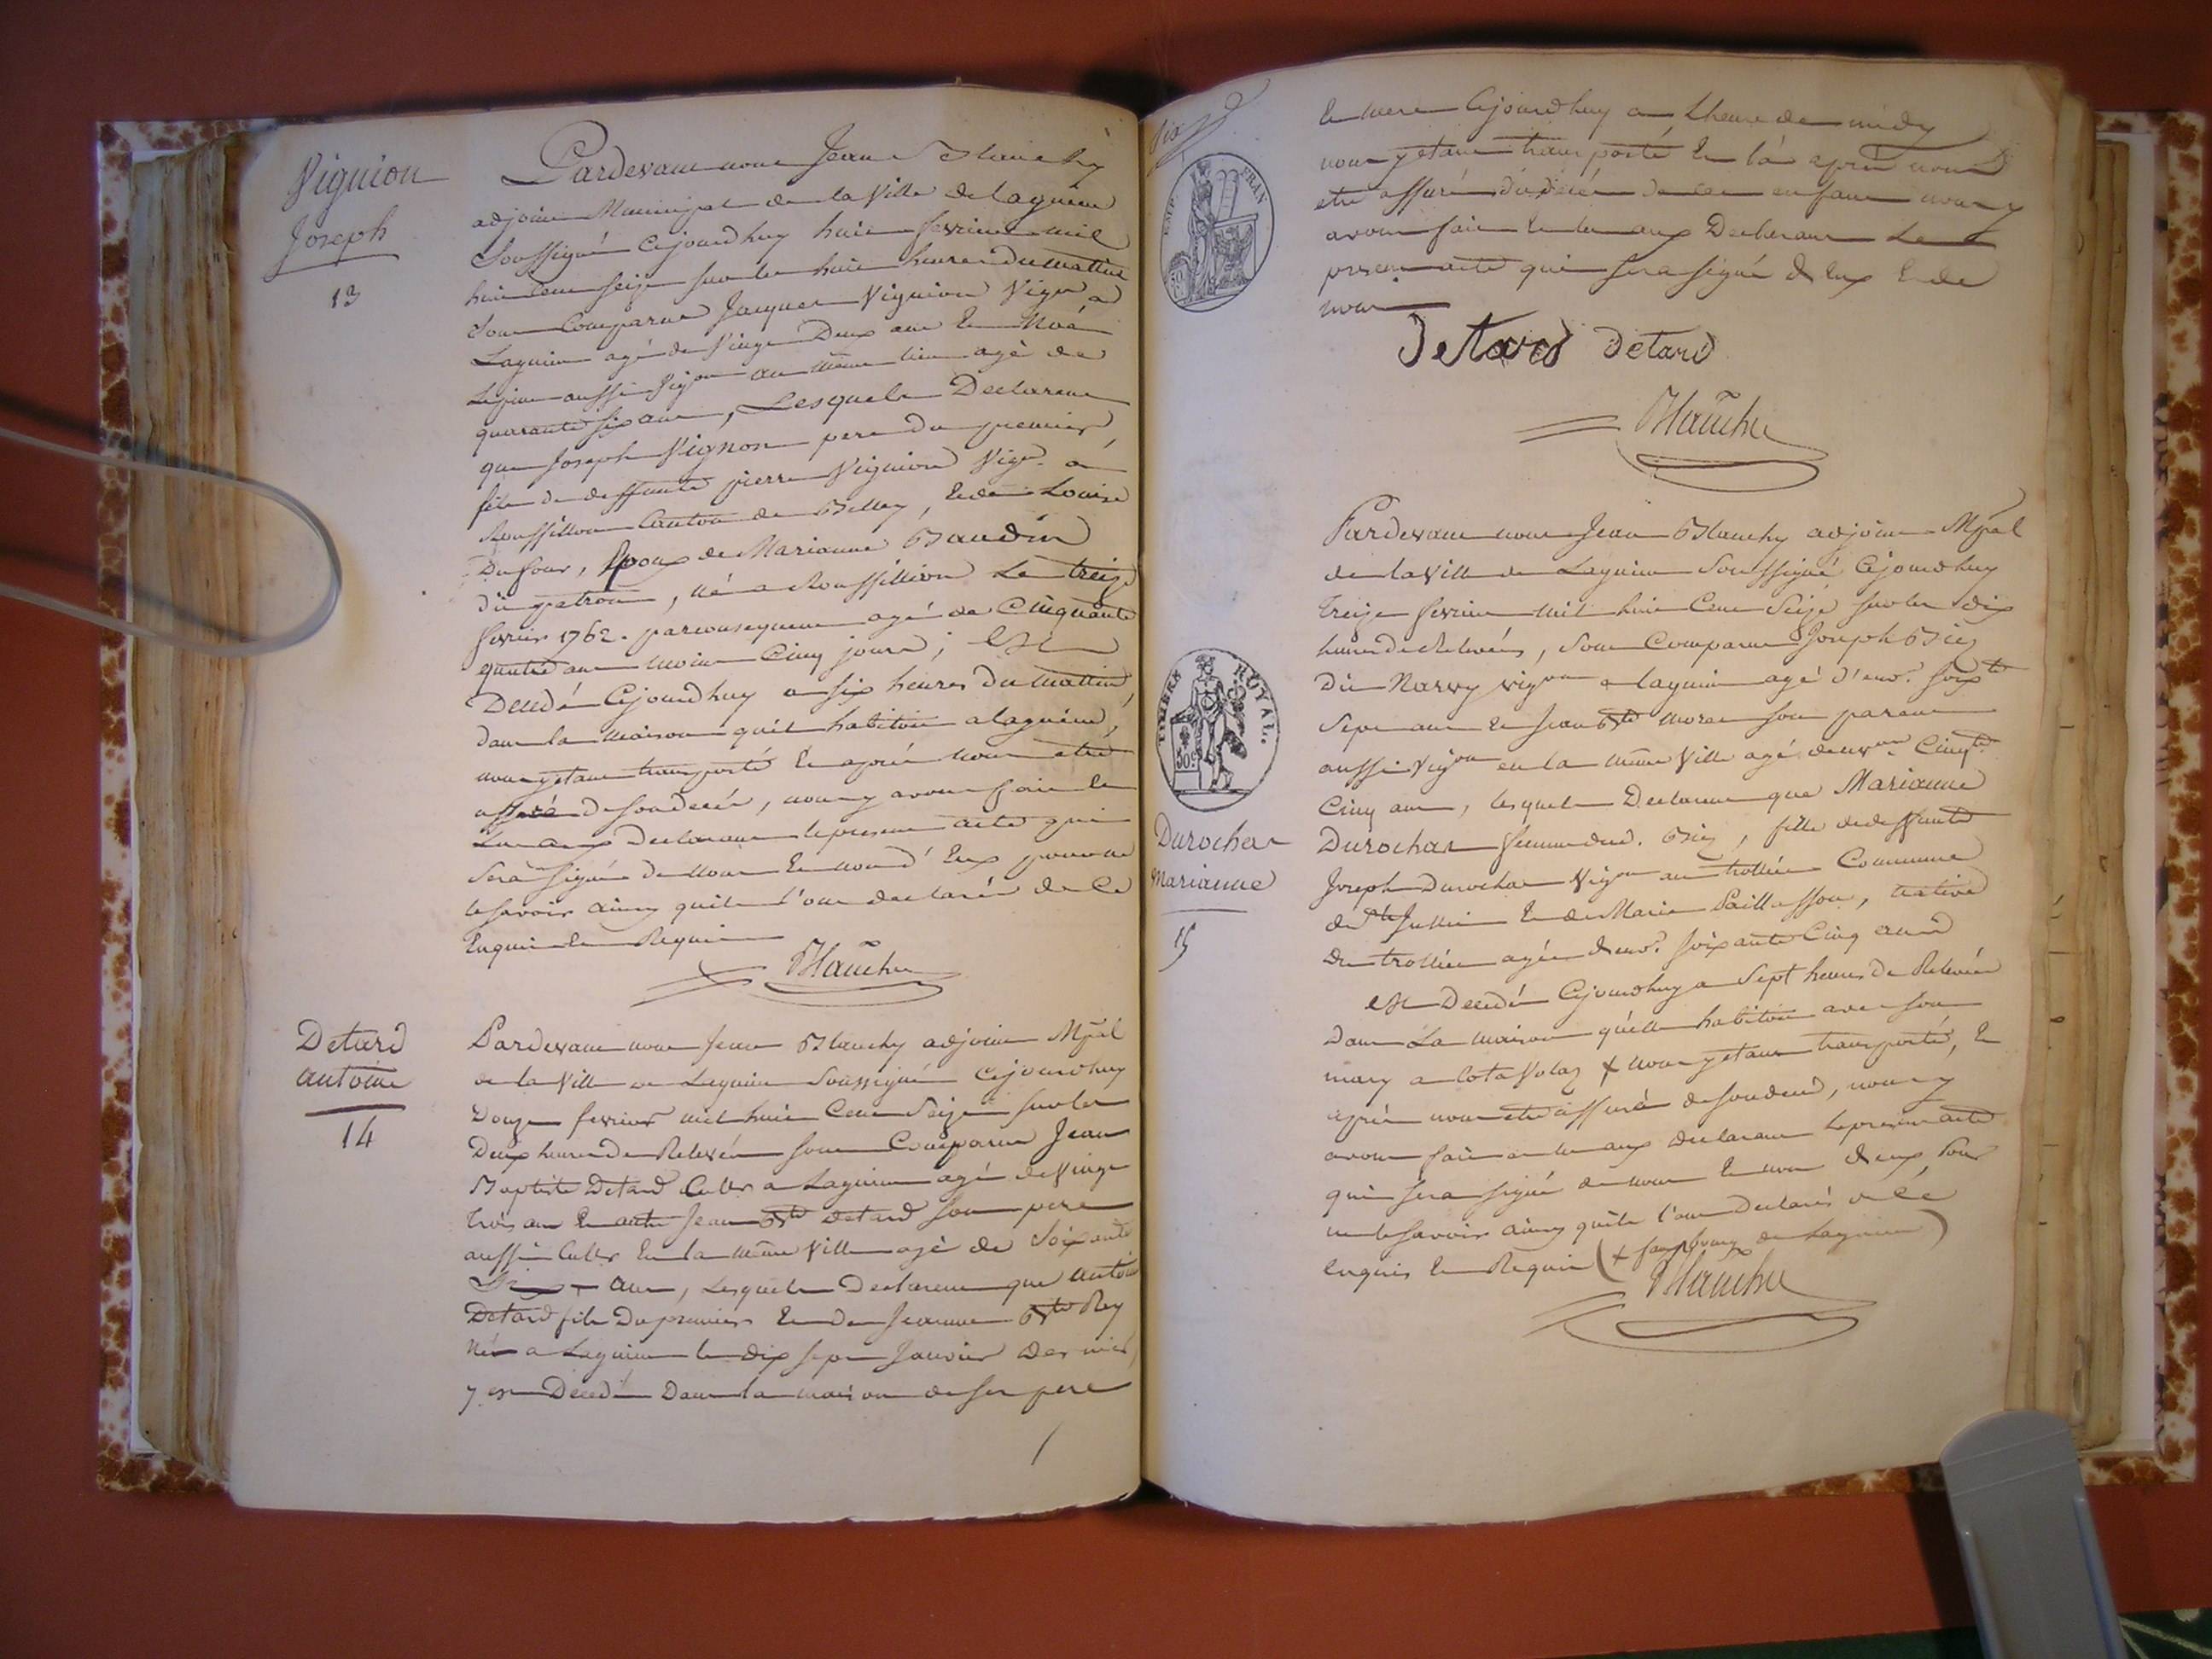 Vignion
Joseph
13
Pardevant nous Jean Blanchy
adjoint Municipal de la Ville de lagnieu
Soussigné Cejourdhuy huit fevrier mil
huit Cent seize sur les huit heures du mattin
Sont Comparus Jacques Vignion Vign. a
Lagnieu agé de Vingt Deux ans Et Noé
aussi Vign au même lieu agé de
quarante six ans, Lesquels Declarent
que Joseph Vignon pere du premier,
fils de deffunts pierre Vignion Vign. a
Roussillon Canton de Belley, Et de Louise
Dufour, Epoux de Marianne Baudin
dit patron, né a Roussillion Le treize
fevrier 1762. parconsequent agé de Cinquante
quatre ans moins Cinq jours; Est
Decedé Cejourdhuy a six heures du mattin,
dans la maison quil habitoit a lagnieu,
nous y etant transporté Et après nous etre
assuré de son decés, nous y avons fait et
Lu aux Declarants le present acte qui
Sera signé de nous Et non d'Eux pour ne
le savoir ainsy quils l'ont declaré de Ce
Enquis et Requis
Blanchy
Detard
antoine
14
Pardevant nous Jean Blanchy adjoint Mpal
de la Ville de Lagnieu Soussigné Cejourdhuy
Douze fevrier mil huit Cent Seize sur les
Deux heures de Relevée sont Comparus Jean
Baptiste Detard Cultr a Lagnieu agé de Vingt
trois ans Et autre Jean Bte Detard son pere
aussi Cultr En la même Ville agé de Soixante
ans, Lesquels Declarent que antoine
Detard fils Du premier Et de Jeanne Bte Rey
Né a Lagnieu le dix sept Janvier Dernier,
y est Decedé Dans la maison de ses pere
Six
EMP. FRAN
50
Et mere Cejourdhuy a Lheure de midy
nous y etant transporté Et là après nous
etre assuré du décès de cet enfant nous y
avons fait Et lu aux Declarants Le
present acte qui sera signé d'Eux Et de
nous
Detard Detard
Blanchy
TIMBRE ROYAL.
50c
Durochar
Marianne
15
Pardevant nous Jean Blanchy adjoint Mpal
de la Ville de Lagnieu Soussigné Cejourdhuy
treize fevrier mil huit Cent Seize sur les dix
heures de Relevée, Sont Comparus Joseph Biez
dit Narvy vign a lagnieu agé d'env. soixte
Sept ans et Jean Bte morel son parent
aussi Vign en la même Ville agé denvon Cinqte
Cinq ans, lesquels Declarent que Marianne
Durochar femme dud. Biez, fille de deffunts
Joseph Durochar Vign au trollier Commune
de Ste Jullie Et de Marie Paillasson, native
du trollier agée denv. soixante Cinq ans
est Decedée Cejourdhuy a Sept heures de Relevée
Dans La maison quelle habitoit avec son
mary a Cota Volaz + nous y etant transporté, Et
après nous etre assuré de son deces, nous y
avons fait et lu aux declarants le present acte
qui sera signé de nous Et non d'eux pour
ne le savoir ainsy quils l'ont Declaré de Ce
Enquis Et Requis (+ fauxbourg de Lagnieu)
Blanchy